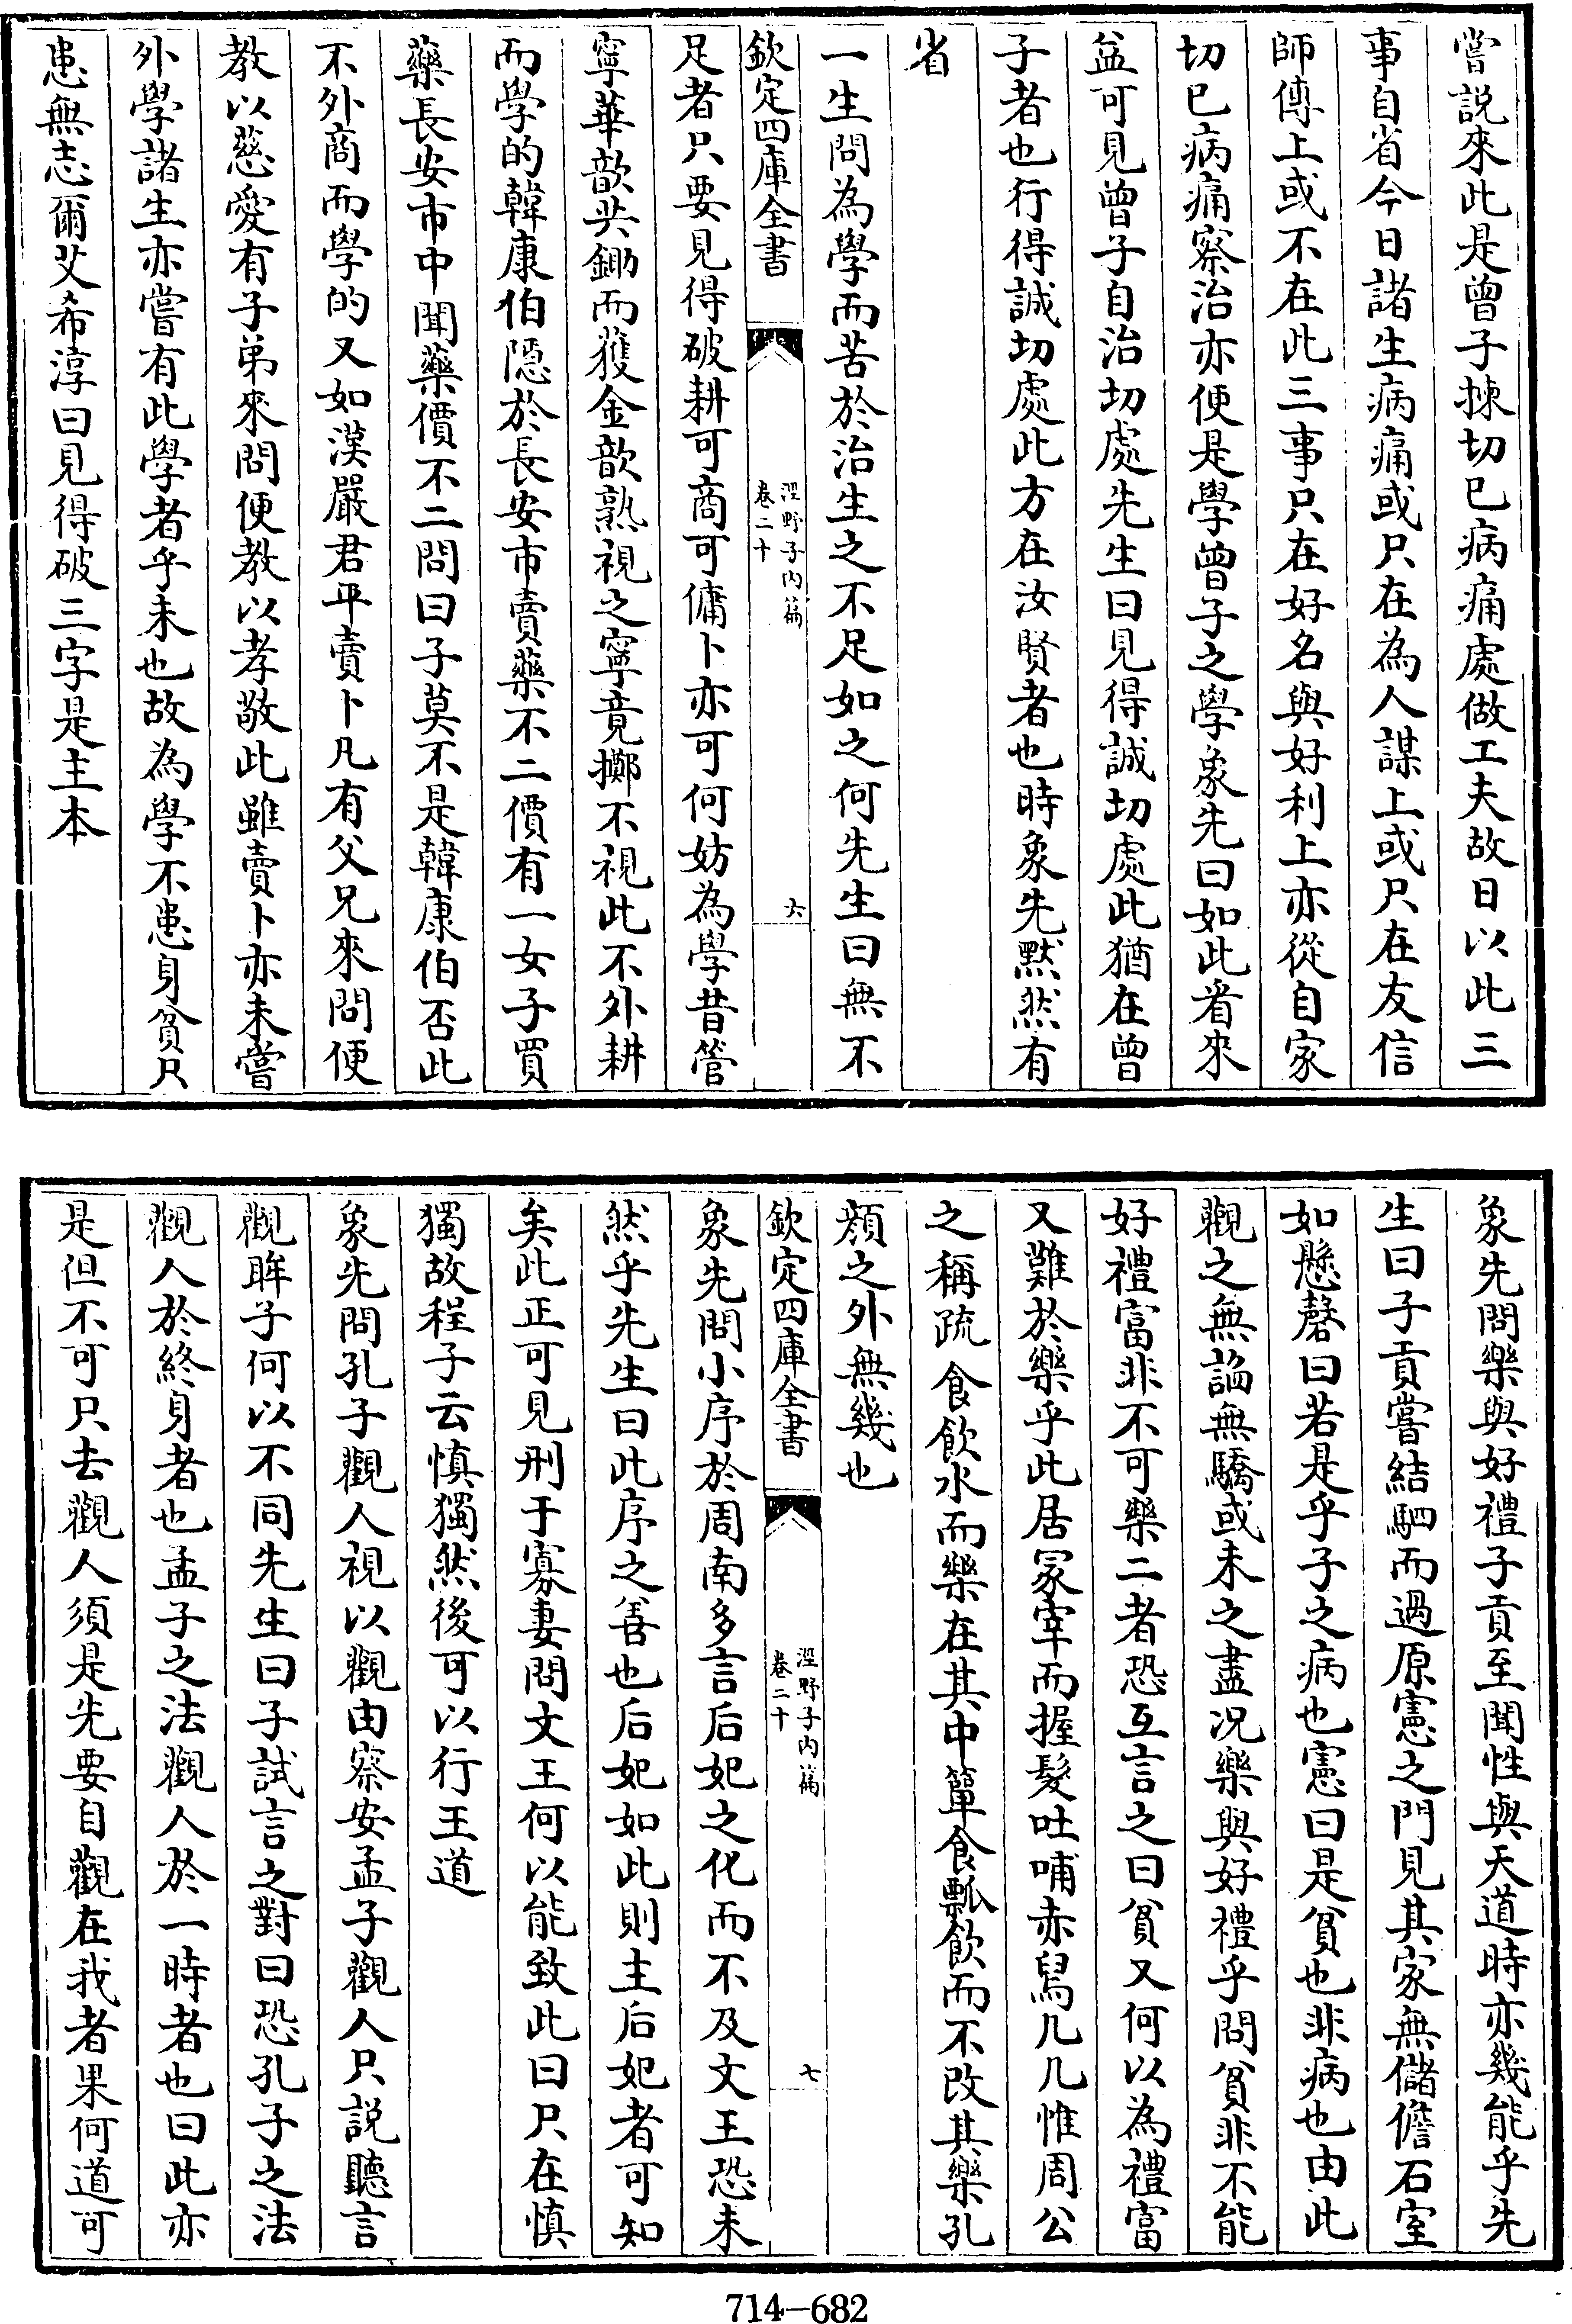 嘗說來此是曾子揀切已病痛處做工夫故日以此三
事自省今日諸生病痛或只在為人謀上或只在友信
師傅上或不在此三事只在好名與好利上亦從自家
切已病痛察治亦便是學曾子之學象先曰如此看來
益可見曾子自治切處先生曰見得誠切處此猶在曾
子者也行得誠切處此方在汝賢者也時象先默然有
省
一生問為學而苦於治生之不足如之何先生曰無不
欽定四庫全書
涇野子內篇
卷二十
六
足者只要見得破耕可商可傭卜亦可何妨為學昔管
寧華歆共鋤而獲金歆熟視之寧竟擲不視此不外耕
而學的韓康伯隱於長安市賣藥不二價有一女子買
藥長安市中聞藥價不二問曰子莫不是韓康伯否此
不外商而學的又如漢嚴君平賣卜凡有父兄來問便
教以慈愛有子弟來問便教以孝敬此雖賣卜亦未嘗
外學諸生亦嘗有此學者乎未也故為學不患身貧只
患無志爾艾希淳曰見得破三字是主本
象先問樂與好禮子貢至聞性與天道時亦幾能乎先
生曰子貢嘗結駟而過原憲之門見其家無儲儋石室
如懸磬曰若是乎子之病也憲曰是貧也非病也由此
觀之無謟無驕或未之盡况樂與好禮乎問貧非不能
好禮富非不可樂二者恐互言之曰貧又何以為禮富
又難於樂乎此居冢宰而握髮吐哺赤舄几几惟周公
之稱疏食飲水而樂在其中簞食瓢飲而不改其樂孔
顏之外無幾也
欽定四庫全書
涇野子內篇
卷二十
七
象先問小序於周南多言后妃之化而不及文王恐未
然乎先生曰此序之善也后妃如此則主后妃者可知
矣此正可見刑于寡妻問文王何以能致此曰只在慎
獨故程子云慎獨然後可以行王道
象先問孔子觀人視以觀由察安孟子觀人只說聽言
觀眸子何以不同先生曰子試言之對曰恐孔子之法
觀人於終身者也孟子之法觀人於一時者也曰此亦
是但不可只去觀人須是先要自觀在我者果何道可
714-682